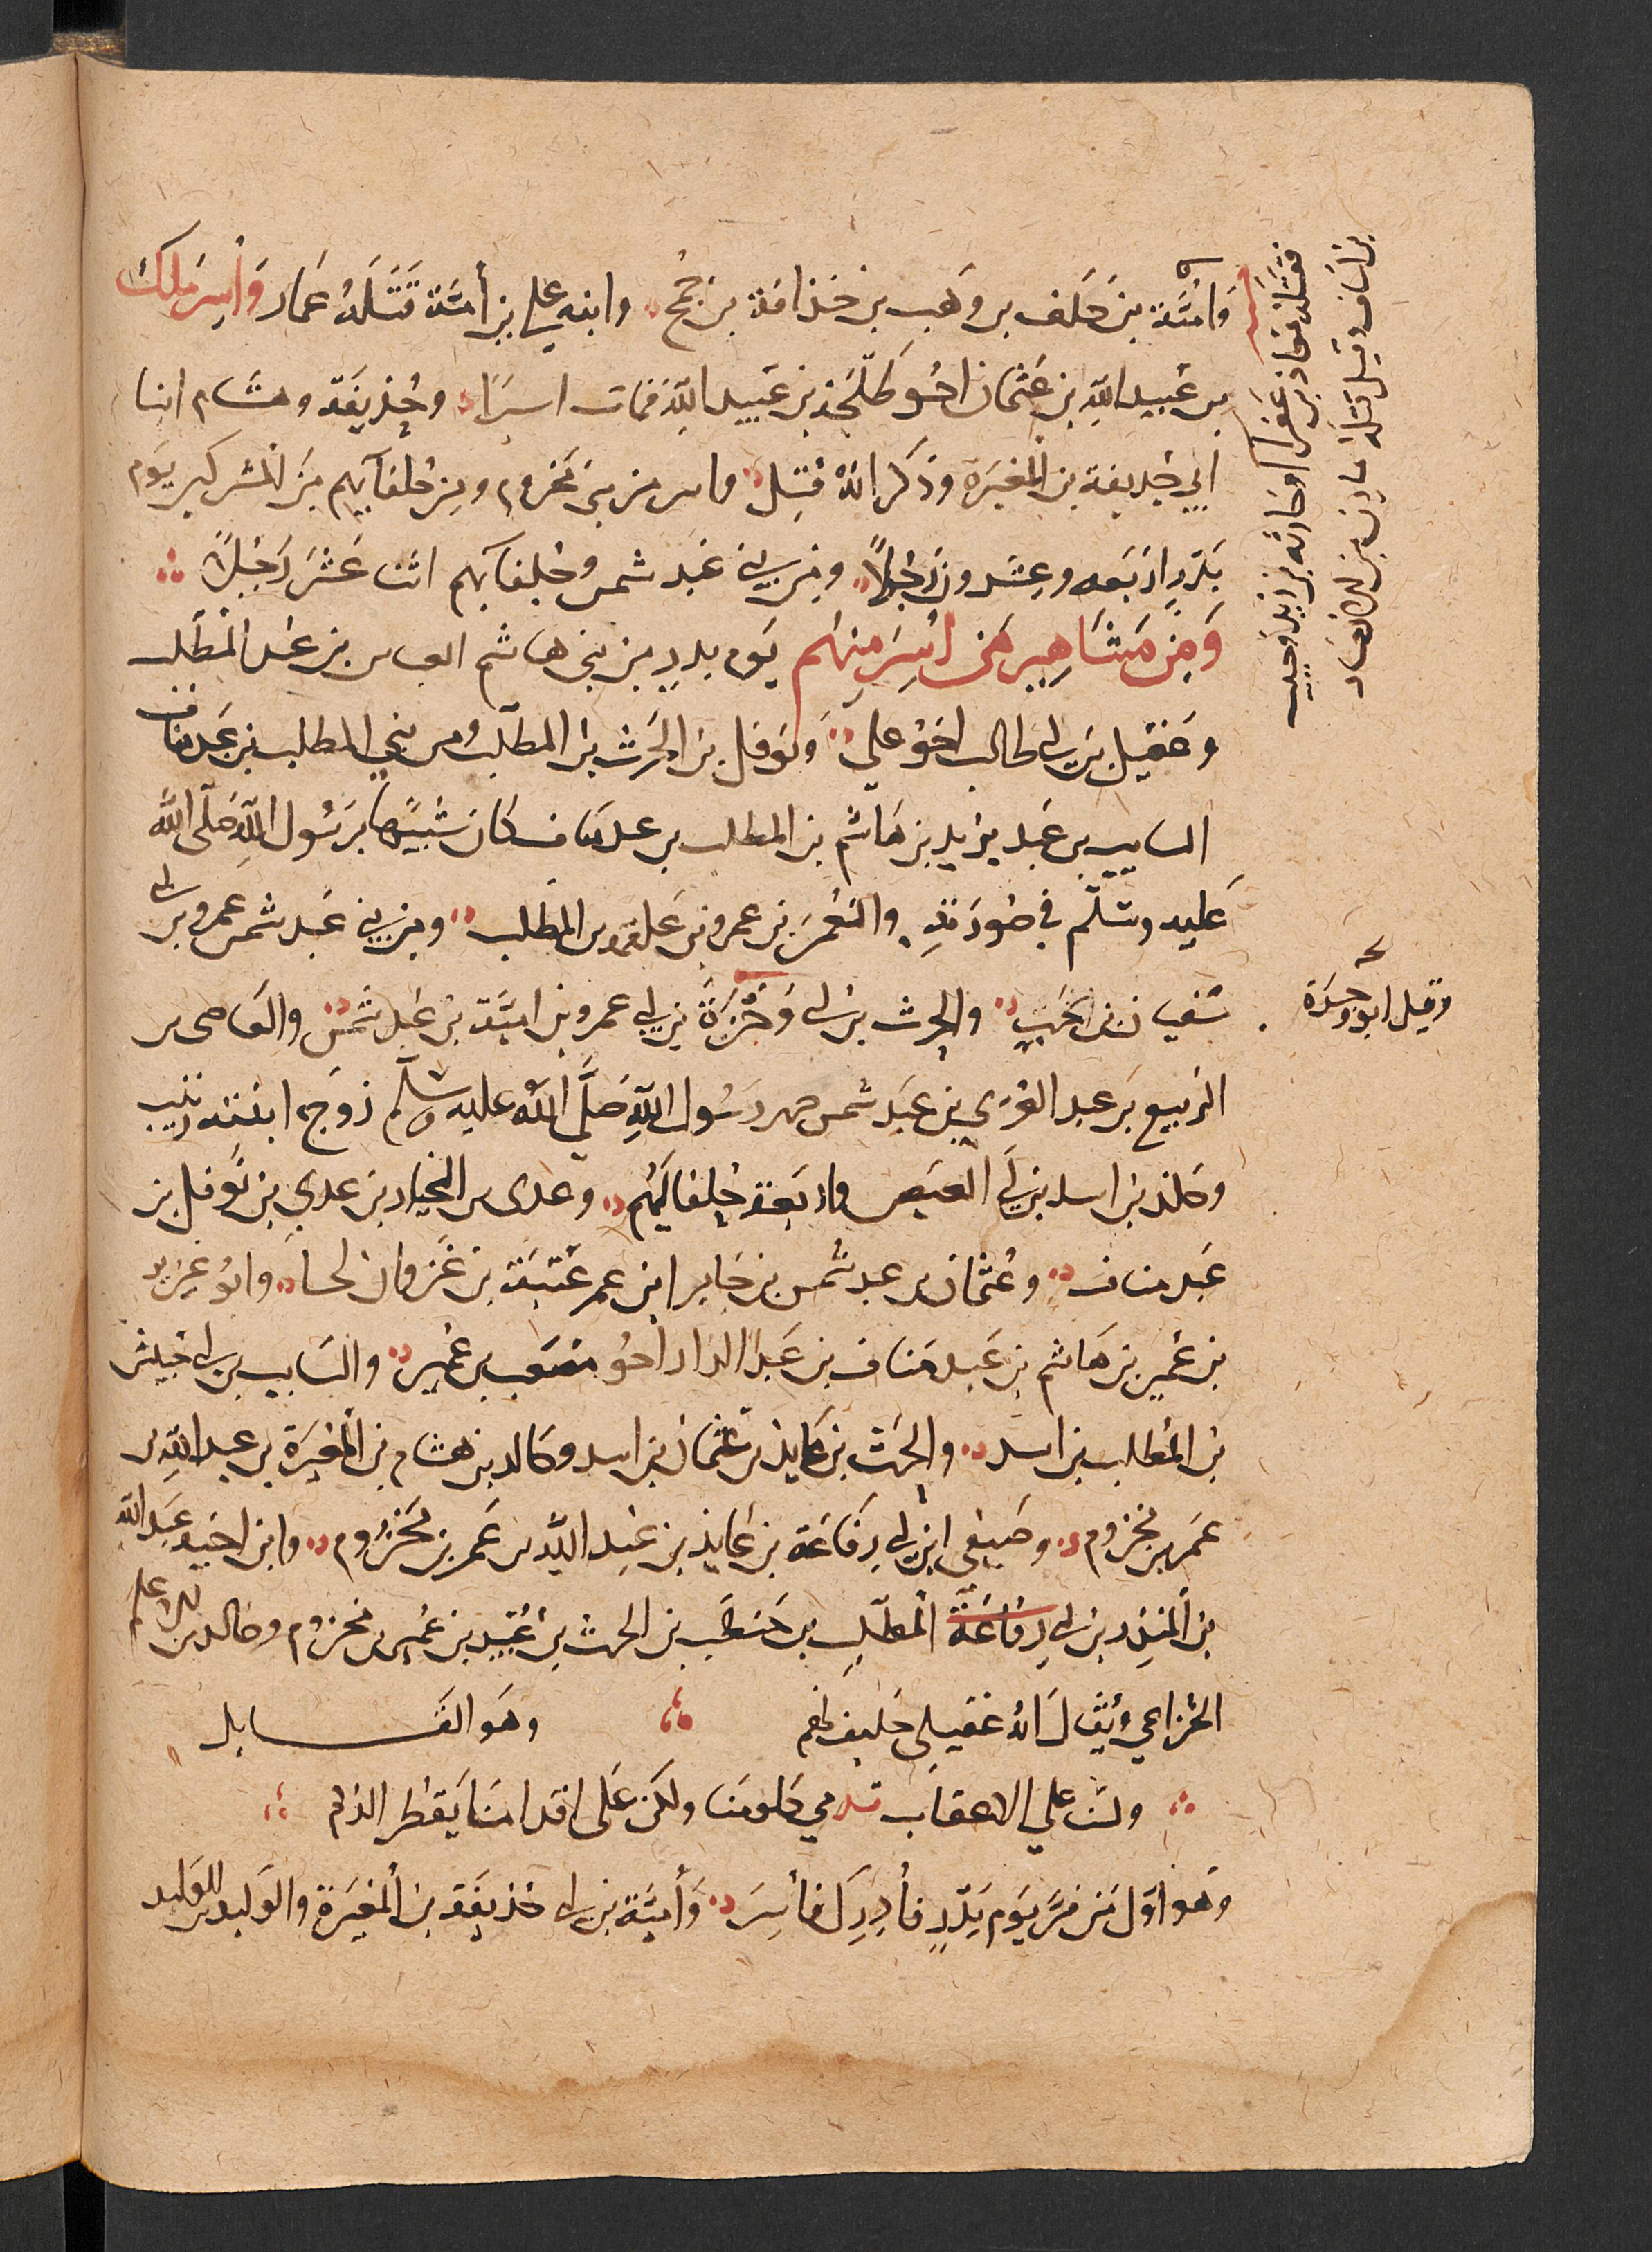 وَأُمَيَّة بن خَلَف بن وَهب بن حذافة بن جُمح وابنه علي بن أميَّة قَتَلَهُ عَمار وَأُسِرَ مَلِك
بن عُبيد اللهِ بن عُثمان اخو طَلْحَة بن عُبيد اللهِ فمات اسيرًا وحُذيفَة وهشام ابنا
ابي حُذيفة بن المغيَرة وذكر انهُ قُتِل واسر من بني مَخزوم ومن حُلفآئهم مِنَ المُشركين يَوم
بَدرٍ اربَعه وعِشرون رَجُلاً ومن بني عَبد شمس وحُلفآئهم اثنا عَشَر رَجُلاً
وَمِن مَشَاهِير مَن اُسِرَ مِنهُم يَوم بدرٍ من بني هاشم العباس بن عبد المطّلب
وعَقيل بن ابي طالب اخو علي وَنوفل بن الحَرث بن المطلب ومن بني المطلب بن عَبد مناف
السايب بن عَبد يزيد بن هَاشم بن المطلب بن عبد مناف كان شَبيهًا برَسُول اللهِ صَلّى الله
عَليه وسَلّم في صُورَتهِ والنعْمَن بن عمرو بن علقمه بن المطلب ومن بني عَبد شمس عمرو بن ابي
سُفيان بن حَرب والحرث بن ابي وَحْزَةَ بن ابي عمرو بن اميَّة بن عَبد شمس والعَاصي بن
الرَبيع بن عبد العُزي بن عَبد شمس صهر رَسُول اللهِ صَلَّى اللهُ عليه وسلم زوج ابنته زينب
وخلد بن اسيد بن ابي العيص واربَعة حُلفا لَهُم وعدي بن الخيار بن عدي بن نَوفل بن
عَبد مناف وعُثمان بن عبد شمس بن جَابر ابن عم عُتبَة بن غَزوان وابو عزيز
بن عُمير بن هَاشم بن عَبد مَناف بن عَبد الدار اخو مصعَب بن عُمير والسَايب بن ابي حُبيش
بن المُطلب بن اسد والحرث بن عايذ بن عثمان بن اسد وخالد بن هشام بن المُغيرة بن عبد اللهِ بن
عمر بن مخزوم وصَيفي ابن ابي رفَاعَة بن عَايذ بن عبد اللهِ بن عمر بن مَخزُوم وابن اخيه عَبد الله
بن المُنذِر بن ابي رِفاعَة المطّلب بن حَنطَب بن الحرث بن عُبَيد بن عُمر بن مخزوم وخالد بن الاعلم
الخُزاعي ويُقَال انهُ عُقيلي حَليف لهم وهَو القَايل
ولَسنا علي الاعقاب تدمي كلومنا ولكن عَلى اقدامنا يَقطر الدم
وهَو اوّل مَن فرَّ يَوم بَدْرٍ فأُدرِكَ فأُسِرَ وَأُميَّة بن ابي حُذيفَة بن المُغيَرة والوَليد بن الوَليد
فقتله معاذ بن عَفرا او خارجَه بن زيد او خبيب
بن اساف وقيل قتله مازن من الانصار
وقيل ابو وَجْزَة